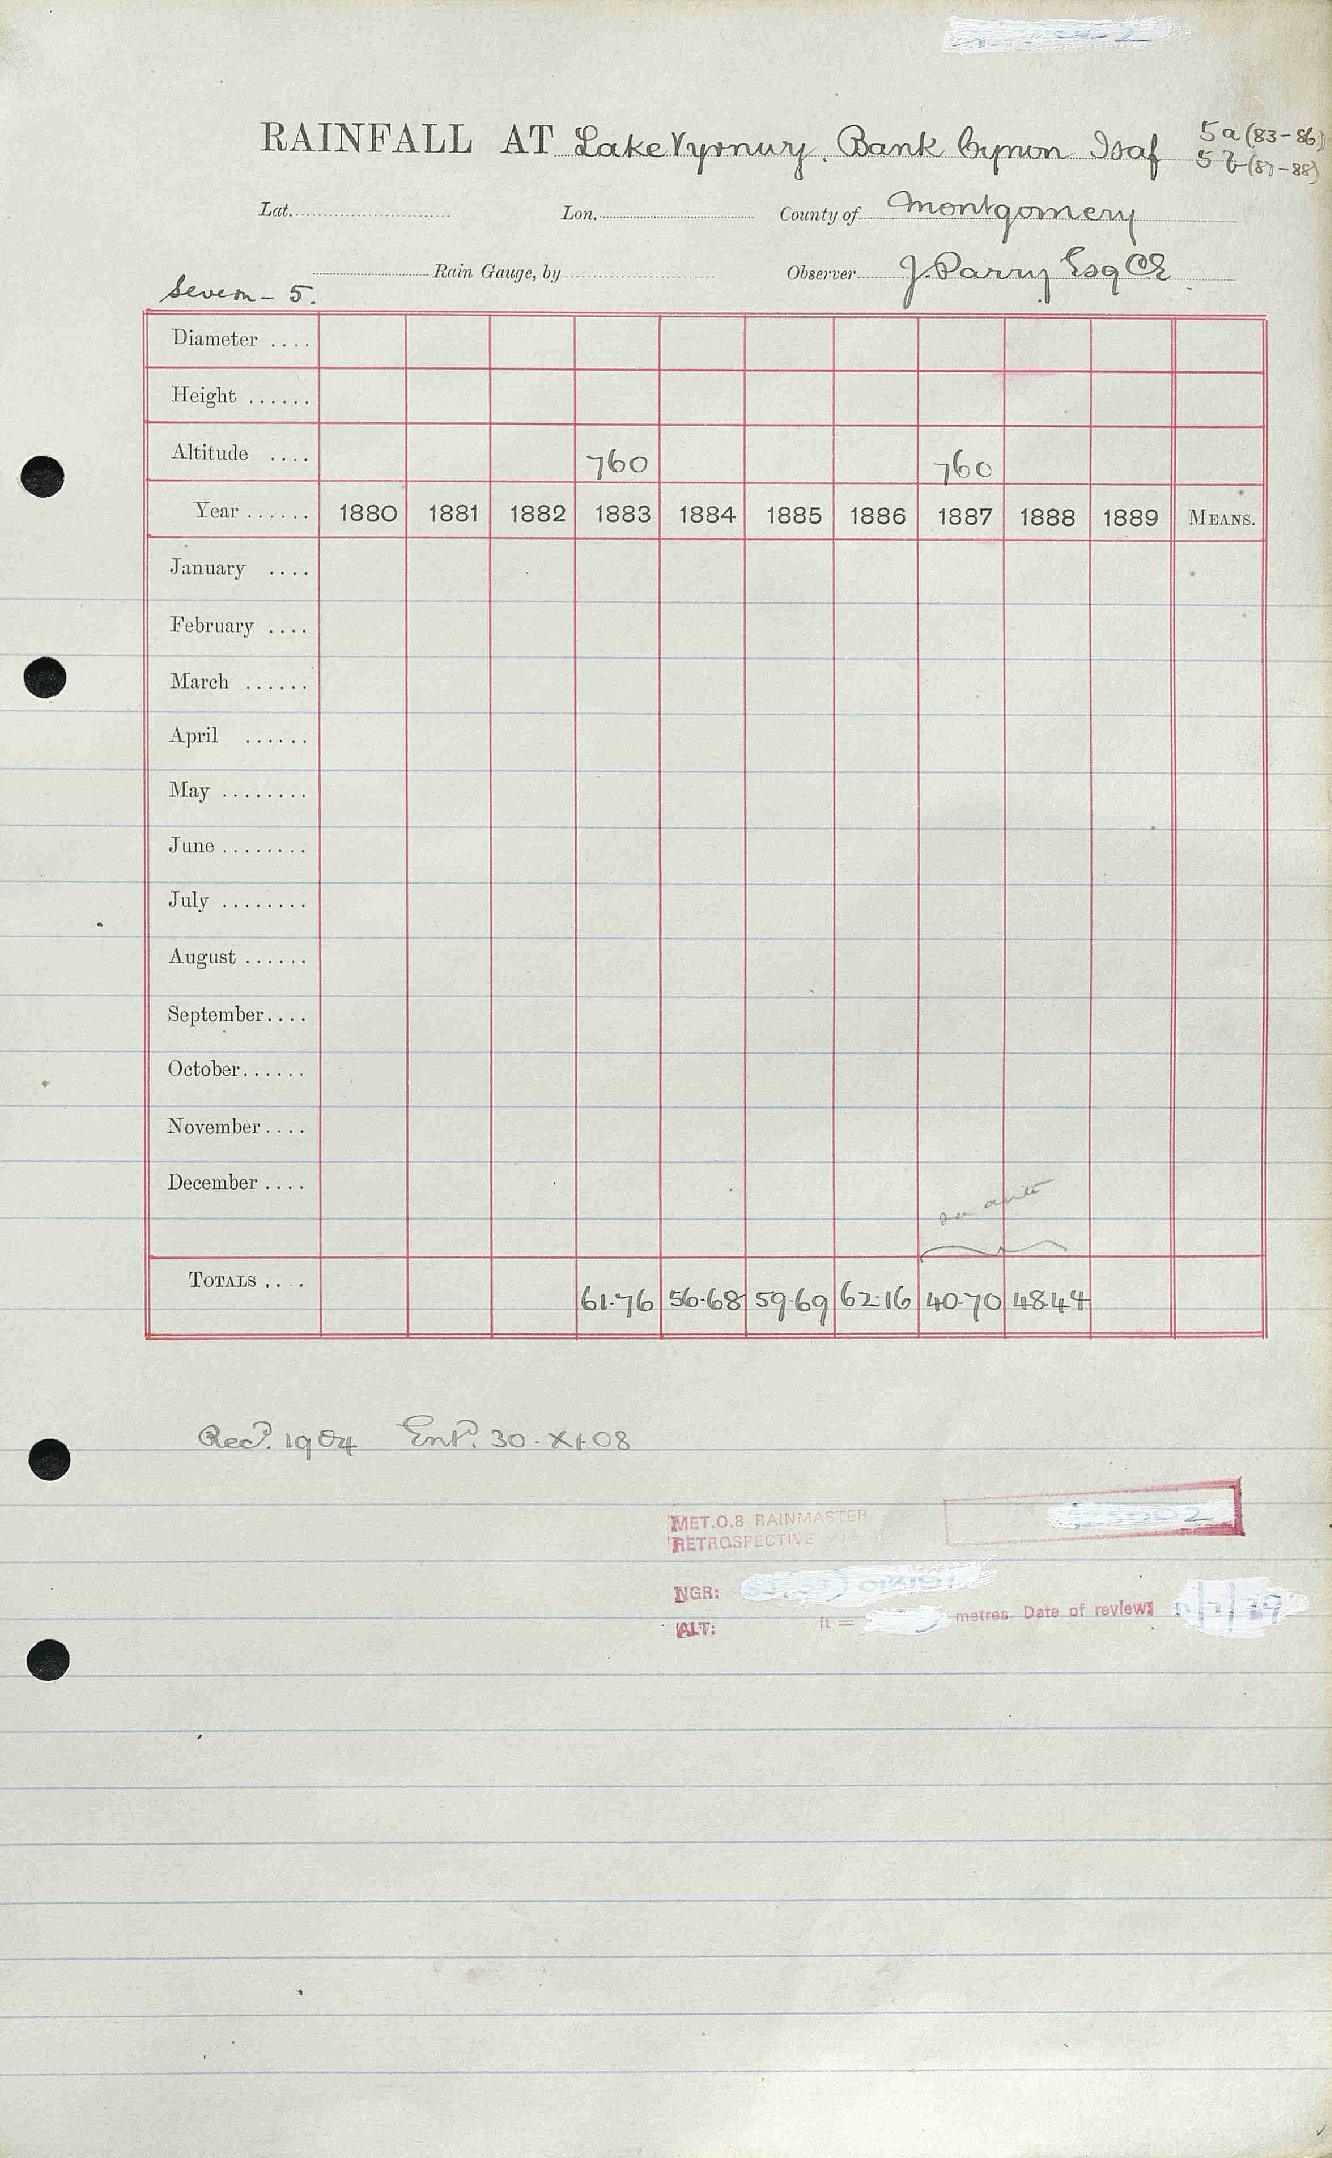 RAINFALL AT Lake Vyrnwy. Bank Cynon Isaf 5a (83-86)
5b (87-88)
Lat. Lon. County of Montgomery
Rain Gauge, by Observer J. Parry Esq CE
Severn - 5.
Diameter ....
Height ......
Altitude .... 760 760
Year ...... 1880 1881 1882 1883 1884 1885 1886 1887 1888 1889 MEANS.
January ....
February ....
March ......
April ......
May ........
June ........
July ........
August ......
September ....
October ......
November ....
December ....
TOTALS .... 61.76 56.68 59.69 62.16 40.70 48.44
Recd. 1904 Entd. 30-XI-08
MET.O.8 RAINMASTER
RETROSPECTIVE
NGR:
ALT: ft = metres. Date of review: